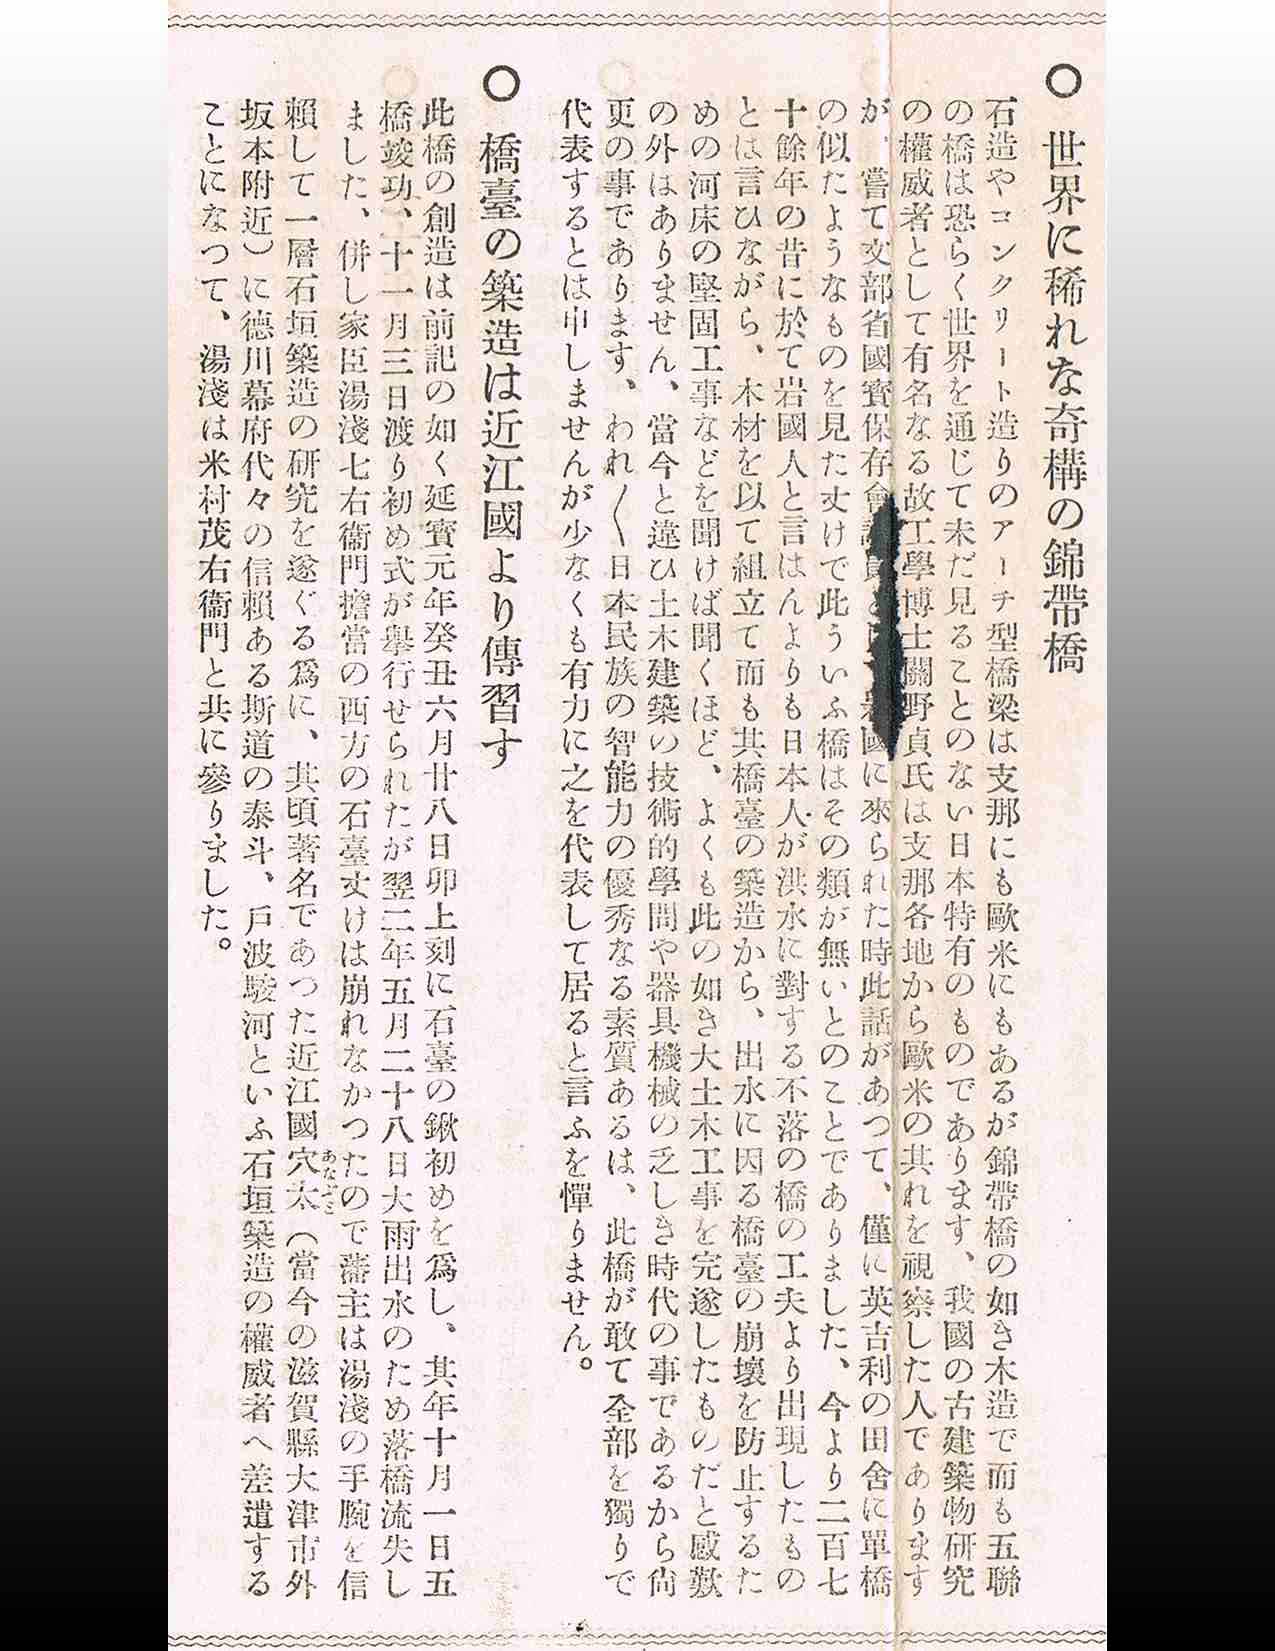 ○ 世界に稀れな奇構の錦帶橋
石造やコンクリート造りのアーチ型橋梁は支那にも歐米にもあるが錦帶橋の如き木造で而も五聯
の橋は恐らく世界を通じて未だ見ることのない日本特有のものであります、我國の古建築物研究
の權威者として有名なる故工學博士關野貞氏は支那各地から歐米の其れを視察した人であります
が、嘗て文部省國寶保存會 國に來られた時此話があつて、僅に英吉利の田舍に單橋
の似たようなものを見た丈けで此ういふ橋はその類が無いとのことでありました、今より二百七
十餘年の昔に於て岩國人と言はんよりも日本人が洪水に對する不落の橋の工夫より出現したもの
とは言ひながら、木材を以て組立て而も其橋臺の築造から、出水に因る橋臺の崩壞を防止するた
めの河床の堅固工事などを聞けば聞くほど、よくも此の如き大土木工事を完遂したものだと感歎
の外はありません、當今と違ひ土木建築の技術的學問や器具機械の乏しき時代の事であるから尙
更の事であります、われ〱日本民族の智能力の優秀なる素質あるは、此橋が敢て全部を獨りで
代表するとは申しませんが少なくも有力に之を代表して居ると言ふを憚りません。
○ 橋臺の築造は近江國より傳習す
此橋の創造は前記の如く延寶元年癸丑六月廿八日卯上刻に石臺の鍬初めを爲し、其年十月一日五
橋竣功、十一月三日渡り初め式が擧行せられたが翌二年五月二十八日大雨出水のため落橋流失し
ました、併し家臣湯淺七右衞門擔當の西方の石臺丈けは崩れなかつたので藩主は湯淺の手腕を信
賴して一層石垣築造の研究を遂ぐる爲に、其頃著名であつた近江國穴太（當今の滋賀縣大津市外
坂本附近）に德川幕府代々の信賴ある斯道の泰斗、戶波駿河といふ石垣築造の權威者へ差遣する
ことになつて、湯淺は米村茂右衞門と共に參りました。